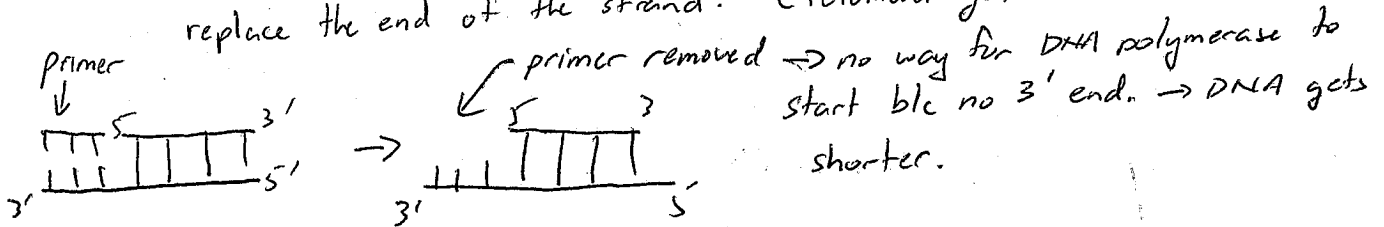 replace the end of the strand.
primer
primer removed → no way for DNA polymerase to
start b/c no 3' end. → DNA gets
shorter.
5 3'
3' 5'
→
5' 3
3' 5'